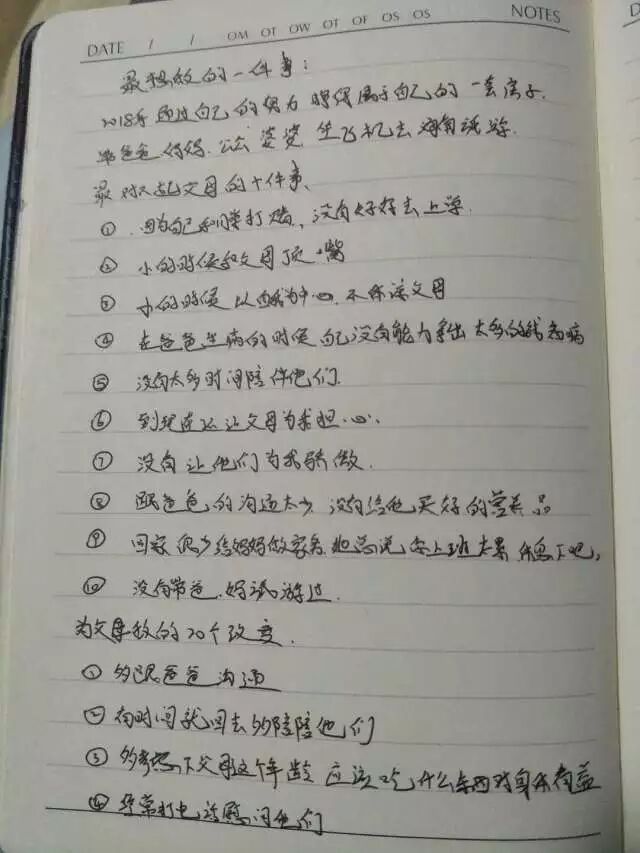 DATE / / OM OT OW OT OF OS OS NOTES
最想做的一件事：
2018年通过自己的努力 赚得属于自己的一套房子.
带爸爸妈妈. 公公 婆婆 坐飞机去 海南旅游.
最对不起父母的十件事、
① 因为自己和同学打赌, 没有好好去上学.
② 小的时候和父母顶嘴
③ 小的时候 以自我为中心. 不体谅父母
④ 在爸爸生病的时候 自己没有能力拿出太多的钱看病
⑤ 没有太多时间陪伴他们.
⑥ 到现在还让父母为我担心.
⑦ 没有让他们为我骄傲.
⑧ 跟爸爸的沟通太少 没有给他买好的营养品
⑨ 回家很少给妈妈做家务 她总说 你上班太累 休息下吧,
⑩ 没有带爸.妈旅游过.
为父母做的20个改变.
① 多跟爸爸沟通
② 有时间就回去多陪陪他们
③ 多考虑下父母这个年龄 应该吃什么东西对身体有益
④ 经常打电话慰问他们